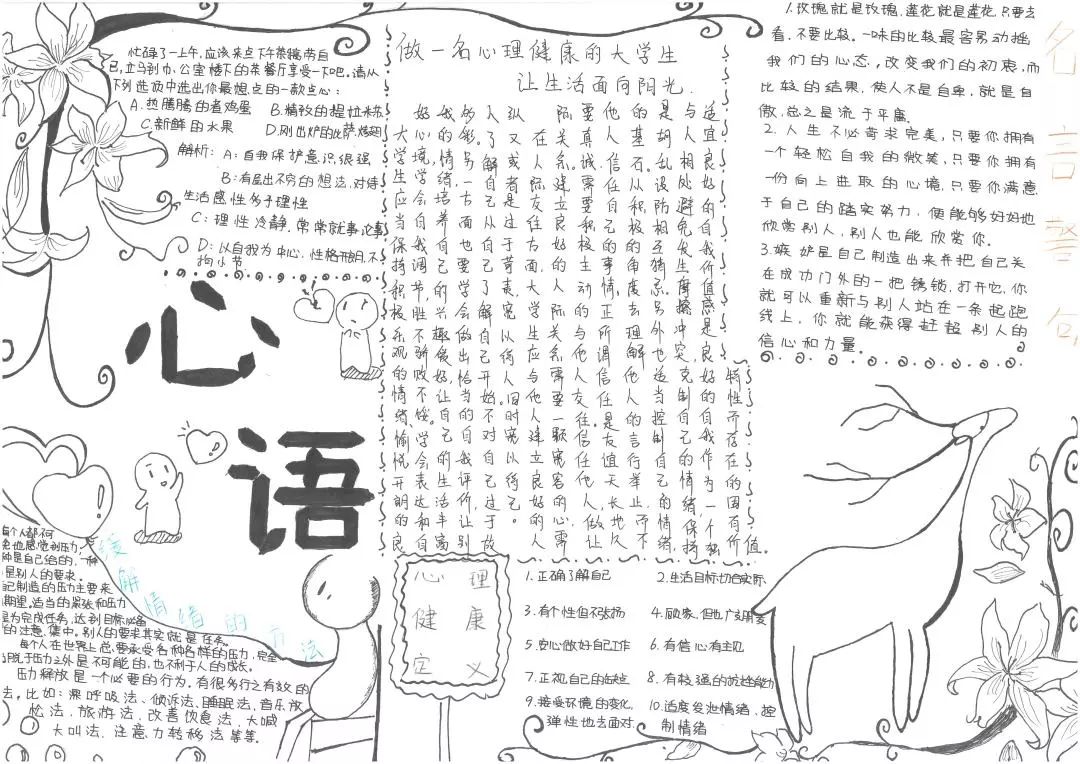 忙碌了一上午,应该来点下午茶犒劳自
己,立马到办公室楼下的茶餐厅享受一下吧。请从
下列选项中选出你最想点的一款点心:
A.热腾腾的煮鸡蛋 B.精致的提拉米苏
C.新鲜的水果 D.刚出炉的披萨烤翅
解析: A:自我保护意识很强
B:有层出不穷的想法,对待
生活感性多于理性
C:理性冷静.常常就事论事
D:以自我为中心,性格开朗,不
拘小节
心
语
做一名心理健康的大学生
让生活面向阳光.
大学生应当保持积极乐观的情绪,愉悦开朗的良
好心境,学会自我调节,胜不骄败不馁,学会表达和自
我的情绪,培养自己的兴趣爱好,让自己的生活丰富
多彩。另一方面也要学会做出恰当的自我评价,让别
人了解自己从自己了解自己开始。不对自己过于放
纵又或者是过于苛责,宽以待人,同时宽以待己。
在人际友往方面,大学生应与人建立良好的人
际关系,建立良好的人际关系需要一颗宽容的心,需
要真诚需要积极主动的与他人交往。信任他人,做让
他人信任自己的事情,正所谓信任是友谊天长地久
的基石。从积极的角度去理解他人的言行举止,而不
是胡乱设防互相猜忌。另外也适当控制自己的情绪,
与人相处避免发生摩擦冲突,克制自己的情绪,保持
适宜良好的自我价值感是良好的自我作为一个独
特性而存在的固有价值。
1.玫瑰就是玫瑰,莲花就是莲花,只要去
看,不要比较。一味的比较最容易动摇
我们的心态,改变我们的初衷,而
比较的结果,使人不是自卑,就是自
傲,总之是流于平庸.
2.人生不必苛求完美,只要你拥有
一个轻松自我的微笑,只要你拥有
一份向上进取的心境,只要你满意
于自己的踏实努力,便能够好好地
欣赏别人,别人也能欣赏你.
3.嫉妒是自己制造出来并把自己关
在成功门外的一把锈锁,打开它,你
就可以重新与别人站在一条起跑
线上,你就能获得赶超别人的
信心和力量.
名言警句
缓解情绪的方法
每个人都不可
免地感觉到压力.
种是自己给的,一种
是别人的要求.
己制造的压力主要来
期望.适当的紧张和压力
是为完成任务,达到目标必备
的注意.集中.别人的要求其实就是任务.
每个人在世界上总要承受各种各样的压力,完全
脱于压力之外是不可能的,也不利于人的成长.
压力释放是一个必要的行为.有很多行之有效的
去.比如:深呼吸法、倾诉法、睡眠法、音乐放
松法、旅游法、改善饮食法、大喊
大叫法、注意力转移法等等.
心理
健康
定义
1.正确了解自己 2.生活目标切合实际
3.有个性但不张扬 4.顾家.但也广交朋友
5.安心做好自己工作 6.有信心有主见
7.正视自己的缺点 8.有较强的抗挫能力
9.接受环境的变化, 10.适度发泄情绪,控
弹性也去面对. 制情绪